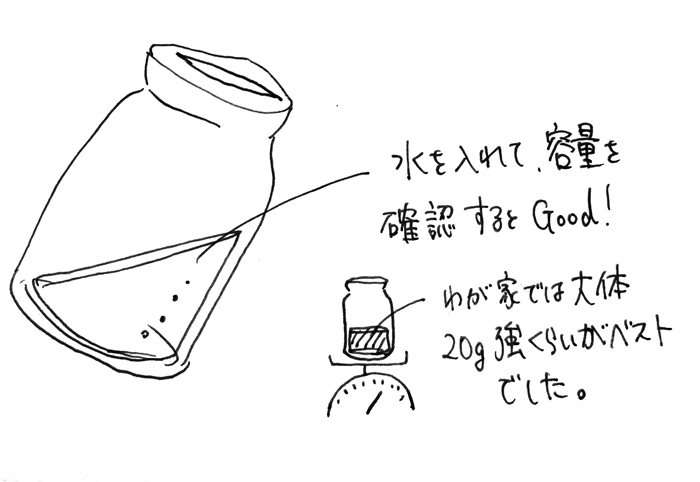 水を入れて、容量を
確認するとGood!
わが家では大体
20g強くらいがベスト
でした。